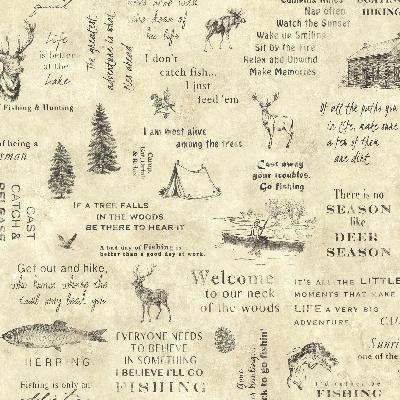 guide
Life
is better
at the
Lake
Fishing & Hunting
The greatest
adventure is what
lies ahead
I don't
catch fish...
I just
feed 'em
Nap often
Watch the Sunset
Wake up Smiling
Sit By the Fire
Relax and Unwind
Make Memories
HIKING
Of all the paths you
in life, make sure
a few of them
are dirt.
I am most alive
among the trees
of being a
Cast away
your troubles.
Go fishing
CAST
CATCH &
RELEASE
IF A TREE FALLS
IN THE WOODS
BE THERE TO HEAR IT
A bad day of Fishing is
better than a good day at work.
There is no
SEASON
like
DEER
SEASON
Get out and hike,
who knows where the
trail may lead you
Welcome
to our neck
of the woods
IT'S ALL THE LITTLE
MOMENTS THAT MAKE
LIFE A VERY BIG
ADVENTURE
HERRING
EVERYONE NEEDS
TO BELIEVE
IN SOMETHING
I BELIEVE I'LL GO
FISHING
Fishing is only an
Gone
back to go fishin'
one of the
I'd rather be
FISHING